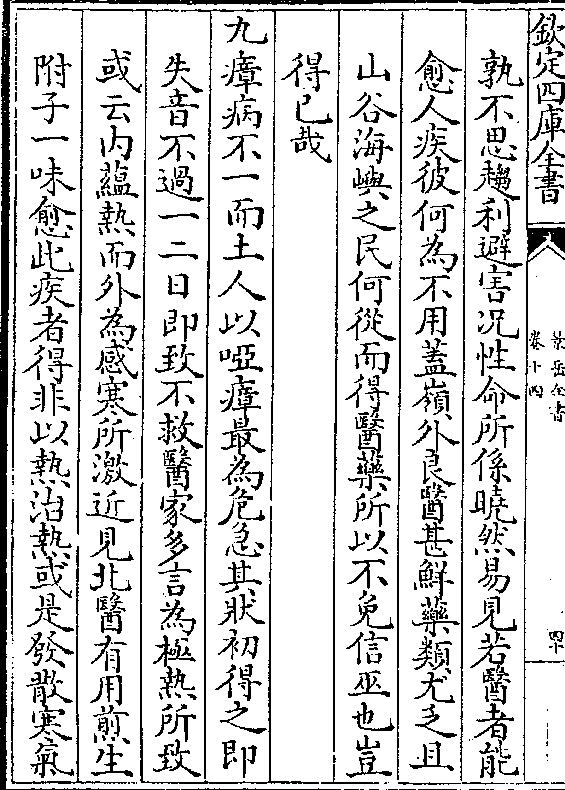 欽定四庫全書
景岳全書
卷十四
四十
孰不思趨利避害况性命所係曉然易見若醫者能
愈人疾彼何為不用蓋嶺外良醫甚鮮藥類尤乏且
山谷海嶼之民何從而得醫藥所以不免信巫也豈
得已哉
九瘴病不一而土人以啞瘴最為危急其狀初得之即
失音不過一二日即致不救醫家多言為極熱所致
或云内藴熱而外為感寒所激近見北醫有用煎生
附子一味愈此疾者得非以熱治熱或是發散寒氣